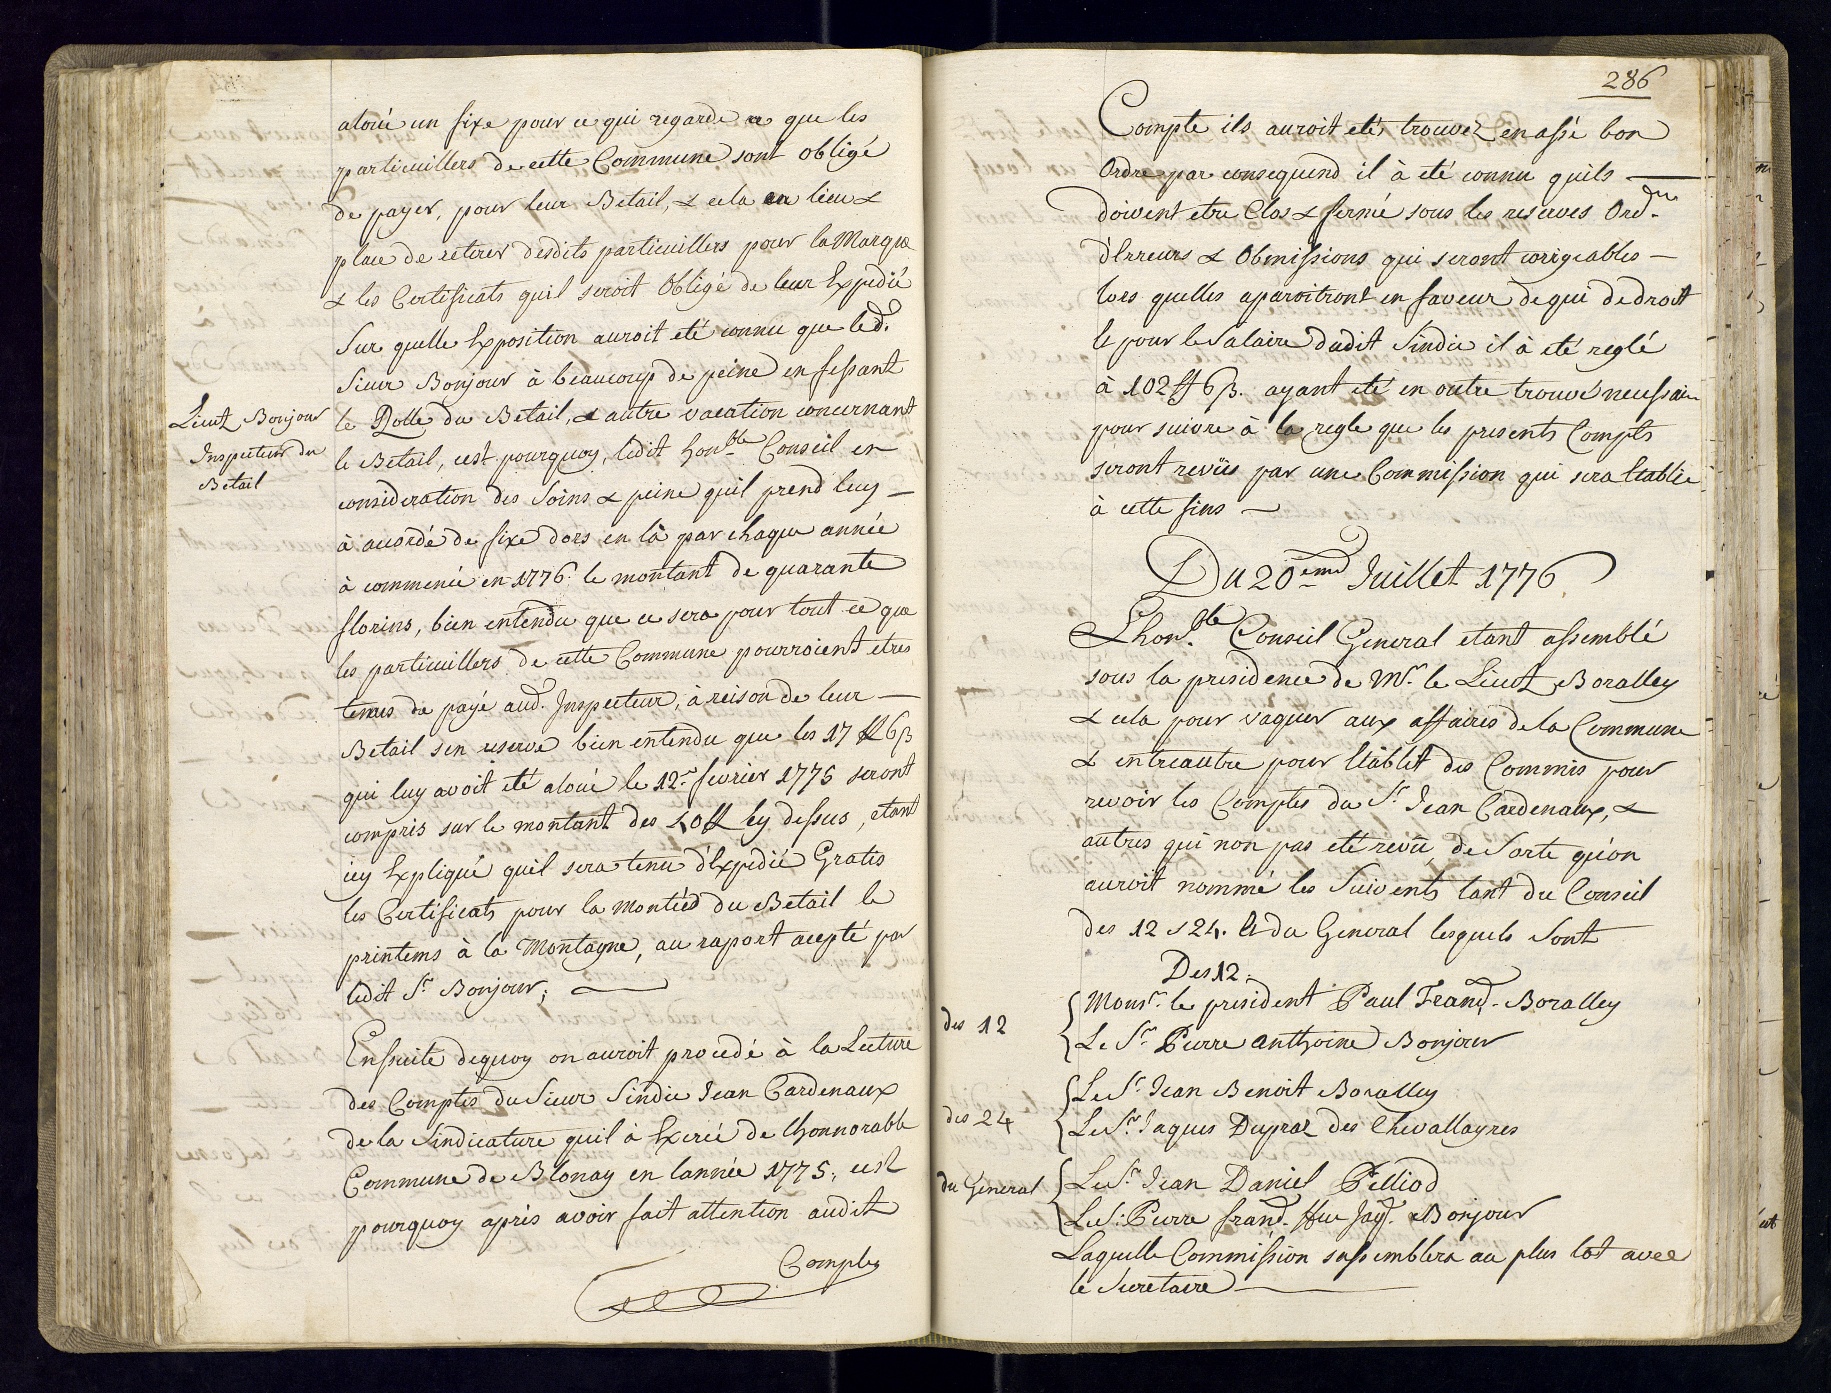 aloüé un fixe pour ce qui regarde ce que les
particuillers de cette Commune sont obligé
de payer, pour leur Betail, & cela en lieu &
place de retirer desdits particuillers pour la Marque
& les Certificats quil seroit Obligé de leur Expedié
Sur quelle Exposition auroit eté connu que led.
Sieur Bonjour à beaucoup de peine en fessant
le Rolle du Betail, & autre vacation concernant
le Betail, cest pourquoy, ledit honble Conseil en
consideration des Soins & peine quil prend luy
à accordé de fixe dors en là par chaque année
à commencé en 1776. le montant de quarante
florins, bien entendu que ce sera pour tout ce que
les particuillers de cette Commune pourroient etres
tenus de payé aud. Inspecteur, à reison de leur
Betail sen reserve bien entendu que les 17 ff 6 ß
qui luy avoit eté aloué le 12e fevrier 1776 seront
compris sur le montant des 40 ff cy dessus, etant
icy Expliqué quil sera tenu d'Expedié Gratis
les Certificats pour la montéed du Betail le
printems à la Montagne, au raport acepté par
ledit Sr Bonjour;
Lieut Bonjour
Inspecteur du
Betail
Ensuite dequoy on auroit procedé à la Lecture
des Comptes du Sieur Sindic Jean Cardenaux
de la Sindicature quil à Exercé de lhonnorable
Commune de Blonay en lannée 1775; cest
pourquoy apris avoir fait attention audit
Comptes
286
Compte ils auroit eté trouvez en assé bon
Ordre par consequend il à eté connu quils
doivent etre Clos & fermé sous les reserves Ordres
d'Erreurs & Obmissions qui seront corrigeables
lors quelles aparoitront en faveur de qui de droit
le pour le Salaire dudit Sindic il à eté reglé
à 102 ff 6 ß. ayant eté en outre trouvé necessaire
pour suivre à la regle que les presents Compts
seront revüs par une Commission qui sera Etablie
à cette fins
Du 20eme Juillet 1776
Lhonble Conseil General etant assemblé
sous la presidence de Mr. le Lieut Boralley
& cela pour vaquer aux affaires de la Commune
& entreautre pour Etablit des Commis pour
revoir les Comptes du Sr Jean Cardenaux, &
autres qui non pas eté revü, de Sorte qu'on
auroit nommé les Suivents tant du Conseil
des 12, 24. & du General lesquels Sont
Des 12.
des 12
Monsr. le president Paul Franç. Boralley
Le Sr Pierre Anthoine Bonjour
des 24
Le Sr Jean Benoit Boralley
Le Sr Jaques Dupraz des Chevallayres
du Géneral
Le Sr Jean Daniel Pilliod
Le S: Pierre franç. ffeu Jaq. Bonjour
Laquelle Commission sassemblera au plus tot avec
le Secretaire